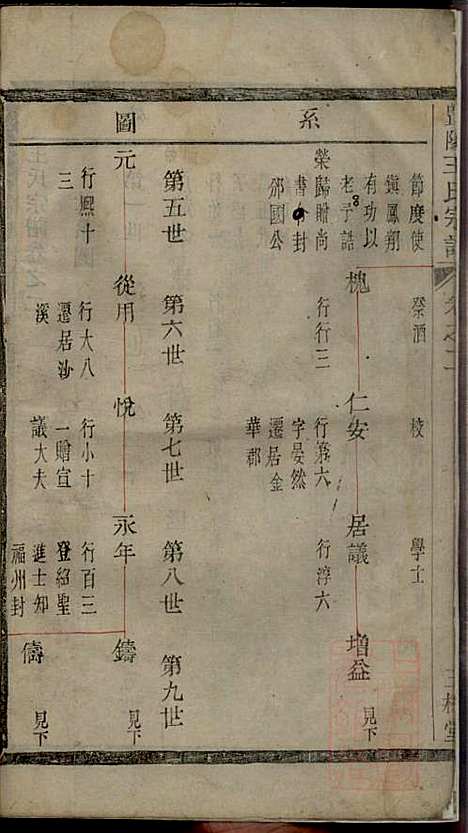 王氏宗譜
卷之二
系
節度使
鎮鳳翔
有功以
老子誥
榮歸贈尚
書令封
邠國公
祭酒
校
學士
槐
行行三
仁安
行第六
字晏然
遷居金
華郡
居議
行淳六
增益
見下
圖
第五世
第六世
第七世
第八世
第九世
元
行熙十
三
從用
行大八
遷居沙
溪
悅
行小十
一贈宣
議大夫
永年
行百三
登紹聖
進士知
福州封
鑄
見下
儔
見下